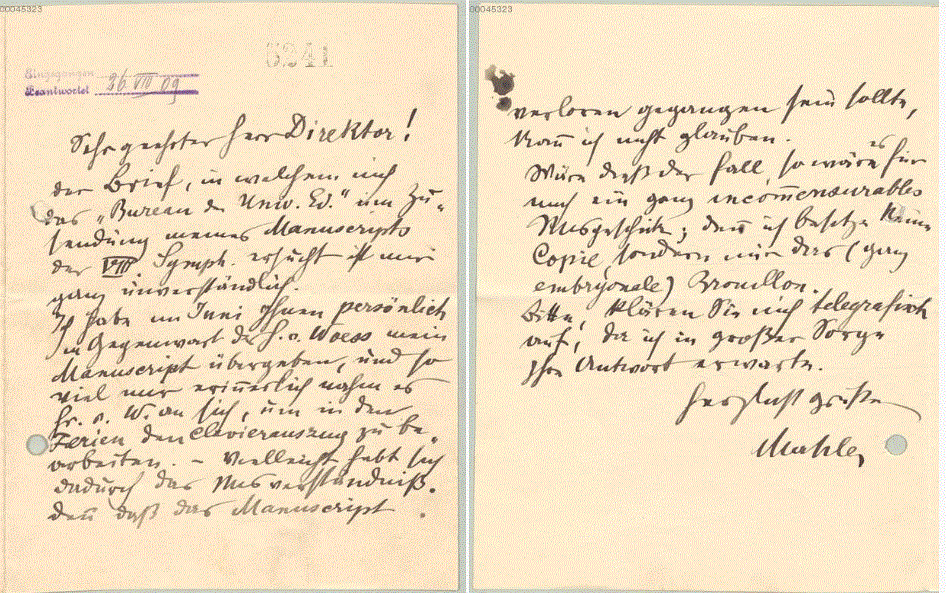 00045323
6241
Eingegangen
Beantwortet 26 VIII 09
Sehr geehrter Herr Direktor!
der Brief, in welchem mich
das „Bureau der Univ. Ed." um Zu-
sendung meines Manuscripts
der VIII. Symph. ersucht ist mir
ganz unverständlich.
Ich habe im Juni Ihnen persönlich
in Gegenwart des H. v. Woess mein
Manuscript übergeben, und so
viel mir erinnerlich nahm es
Hr. v. W. an sich, um in den
Ferien den Clavierauszug zu be-
arbeiten. – Vielleicht hebt sich
dadurch das Misverständniß.
Den̅ daß das Manuscript
00045323
verloren gegangen sein sollte,
kan̅ ich nicht glauben.
Wäre dieß der Fall, so wäre es für
mich ein ganz incom̅ensurables
Misgeschick; den̅ ich besitze keine
Copie, sondern nur das (ganz
embryonale) Brouillon.
Bitte, klären Sie mich telegrafisch
auf, da ich in großer Sorge
Ihre Antwort erwarte.
Herzlichst grüßend
Mahler